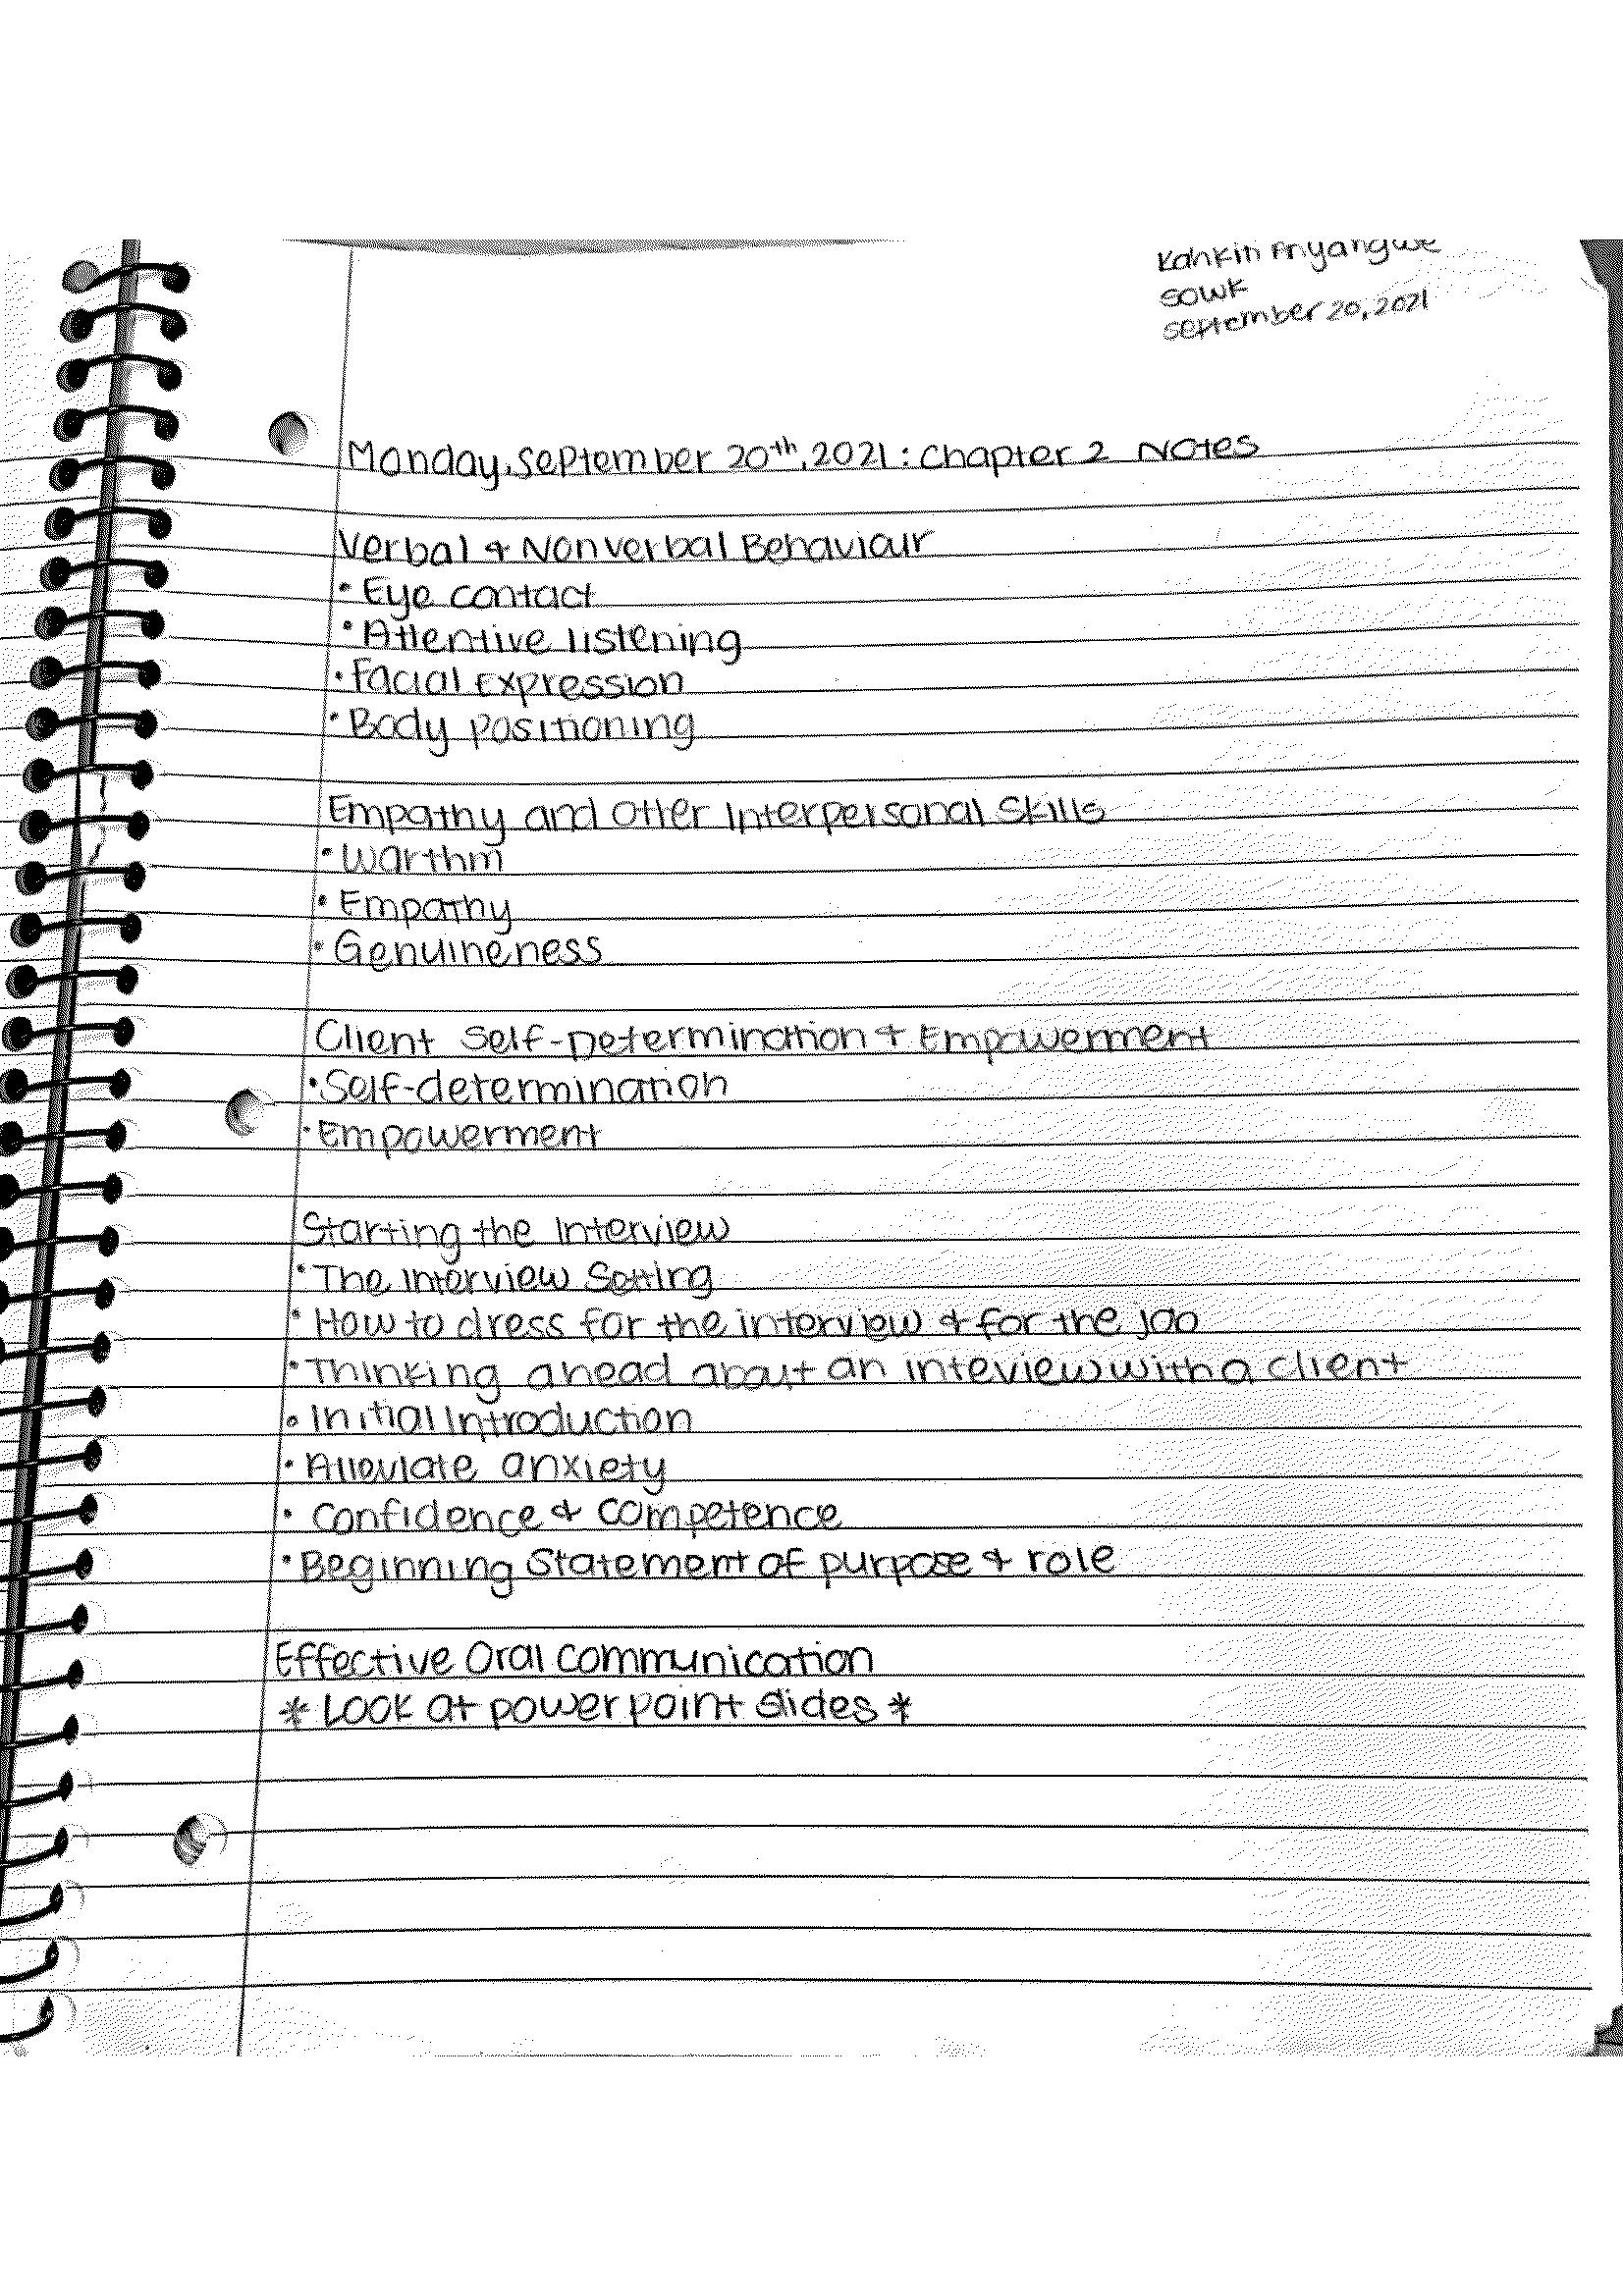 Kankiti Anyangwe
SOWK
September 20, 2021
Monday, September 20th, 2021 : Chapter 2 Notes
Verbal & Nonverbal Behaviour
• Eye contact
• Attentive listening
• Facial Expression
• Body positioning
Empathy and Otter Interpersonal Skills
• Warthm
• Empathy
• Genuineness
Client Self-Determination & Empowerment
• Self-determination
• Empowerment
Starting the Interview
• The Interview Setting
• How to dress for the interview & for the job
• Thinking ahead about an inteview with a client
• Initial Introduction
• Alleviate anxiety
• Confidence & Competence
• Beginning Statement of purpose & role
Effective Oral Communication
* Look at powerpoint slides *